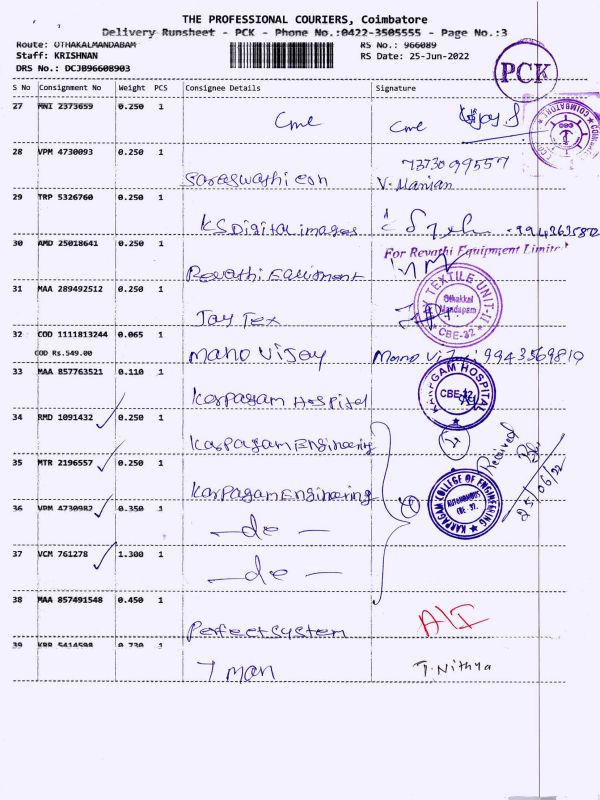 THE PROFESSIONAL COURIERS, Coimbatore
Delivery Runsheet - PCK - Phone No.:0422-3505555 - Page No.:3
Route: OTHAKALMANDABAM RS No.: 966089
Staff: KRISHNAN RS Date: 25-Jun-2022
DRS No.: DCJB96608903
PCK
S No Consignment No Weight PCS Consignee Details Signature
27 MNI 2373659 0.250 1
Cme Cme
COIMBATORE
28 VPM 4730093 0.250 1
7373099557
Saraswathi V. Manian
29 TRP 5326760 0.250 1
KS Digital images
30 AMD 25018641 0.250 1
For Revathi Equipment Limited
Revathi Equipment
31 MAA 289492512 0.250 1
TEXTILE UNIT-II
Othakkal
Mandapam
CBE-32
Jay Tex
32 COD 1111813244 0.065 1
COD Rs.549.00
Mano Vijay Mano Vijay 9943569810
33 MAA 857763521 0.110 1
KARPAGAM HOSPITAL
CBE-32
Karpagam Hospital
34 RMD 1091432 0.250 1
Karpagam Engineering
Received
35 MTR 2196557 0.250 1
Karpagam Engineering
KARPAGAM COLLEGE OF ENGINEERING
AUTONOMOUS
CBE - 32.
25/06/22
36 VPM 4730982 0.350 1
- do -
37 VCM 761278 1.300 1
- do -
38 MAA 857491548 0.450 1
Perfect system
39 KRR 5414598 0.730 1
T man T. Nithya